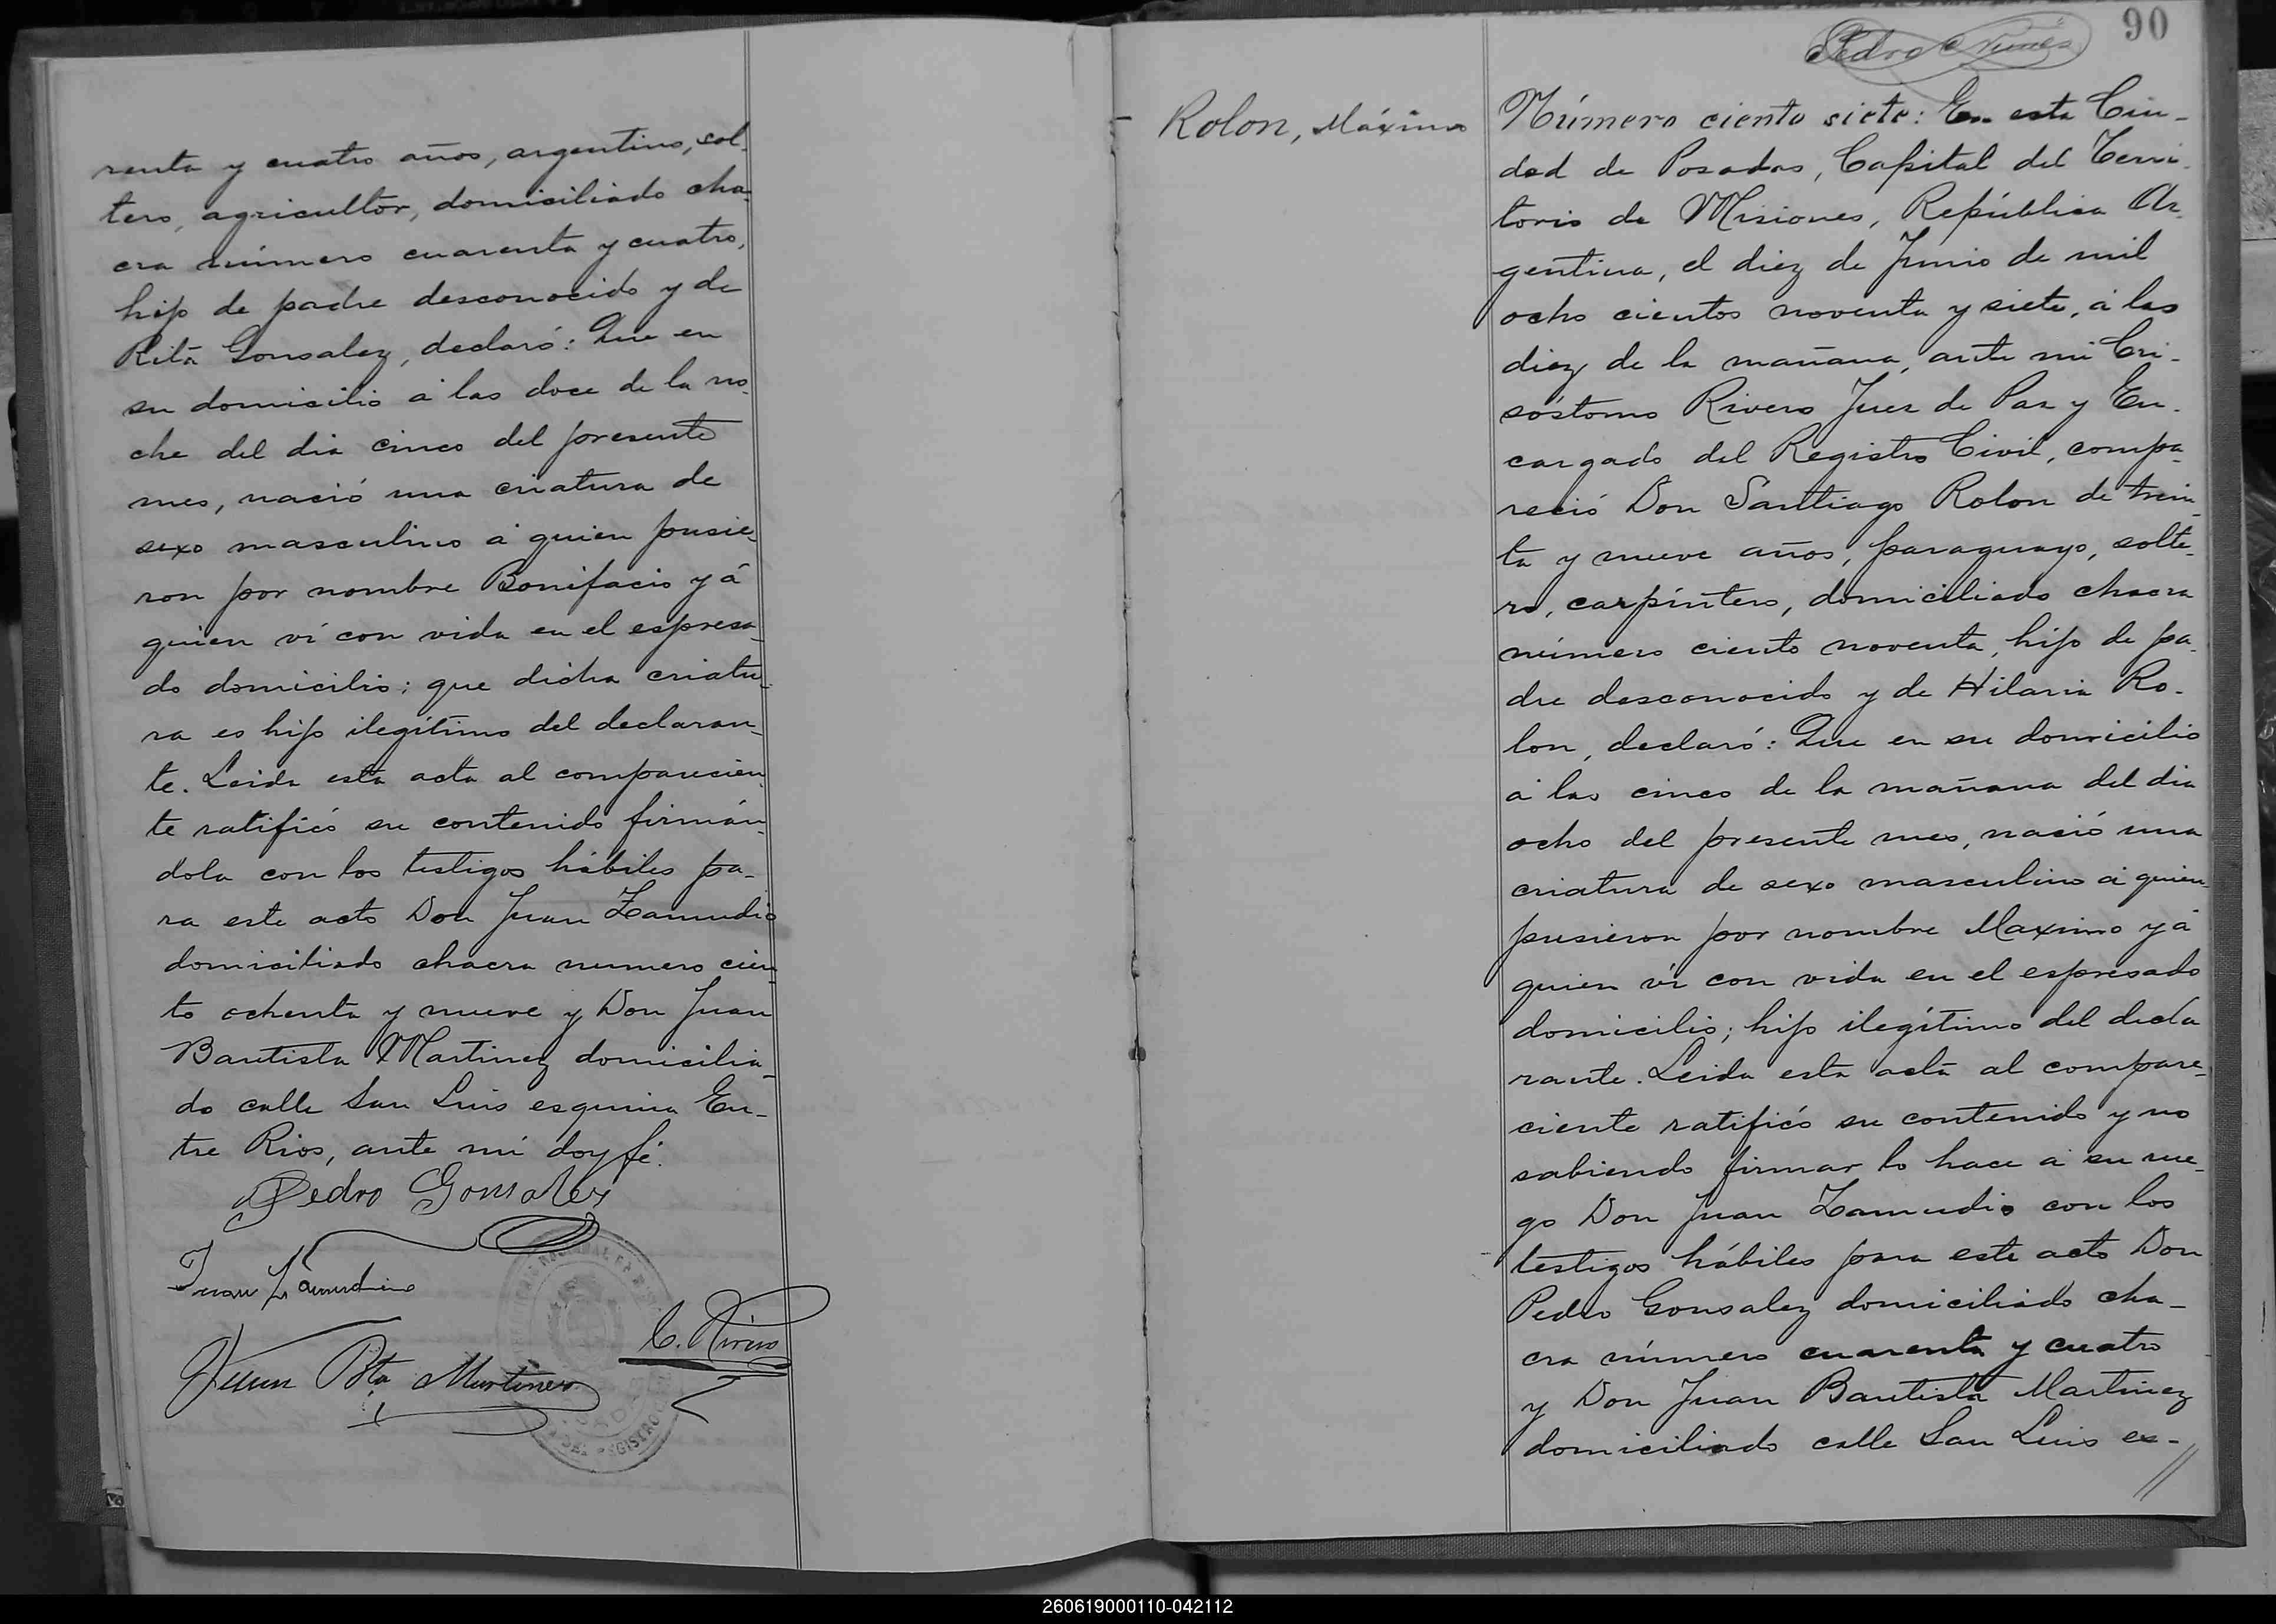 renta y cuatro años, argentino, sol-
tero, agricultor, domiciliado cha-
cra número cuarenta y cuatro,
hijo de padre desconocido y de
Rita Gonsalez, declaró: Que en
su domicilio á las doce de la no-
che del dia cinco del presente
mes, nació una criatura de
sexo masculino á quien pusie-
ron por nombre Bonifacio y á
quien ví con vida en el espresa-
do domicilio; que dicha criatu-
ra es hijo ilegítimo del declaran-
te. Leida esta acta al comparecien-
te ratificó su contenido firmán-
dola con los testigos hábiles pa-
ra este acto Don Juan Zamudio
domiciliado chacra numero cien-
to ochenta y nueve y Don Juan
Bautista Martinez domicilia-
do calle San Luis esquina En-
tre Rios, ante mí doy fé.
Pedro Gonsalez
Juan Zamudio
C. Rivero
Juan Bta Martinez
90
Pedro Nuñez
Rolon, Máximo
Número ciento siete: En esta Ciu-
dad de Posadas, Capital del Terri-
torio de Misiones, República Ar-
gentina, el diez de Junio de mil
ocho cientos noventa y siete, á las
diez de la mañana, ante mi Cri-
sóstomo Rivero Juez de Paz y En-
cargado del Registro Civil, compa-
reció Don Santiago Rolon de trein-
ta y nueve años, paraguayo, solte-
ro, carpintero, domiciliado chacra
número ciento noventa, hijo de pa-
dre desconocido y de Hilaria Ro-
lon, declaró: Que en su domicilio
á las cinco de la mañana del dia
ocho del presente mes, nació una
criatura de sexo masculino á quien
pusieron por nombre Maximo y á
quien ví con vida en el espresado
domicilio; hijo ilegítimo del decla
rante. Leida esta acta al compare-
ciente ratificó su contenido y no
sabiendo firmar lo hace á su rue-
go Don Juan Zamudio con los
testigos hábiles para este acto Don
Pedro Gonsalez domiciliado cha-
cra número cuarenta y cuatro
y Don Juan Bautista Martinez
domiciliado calle San Luis es-
//
260619000110-042112